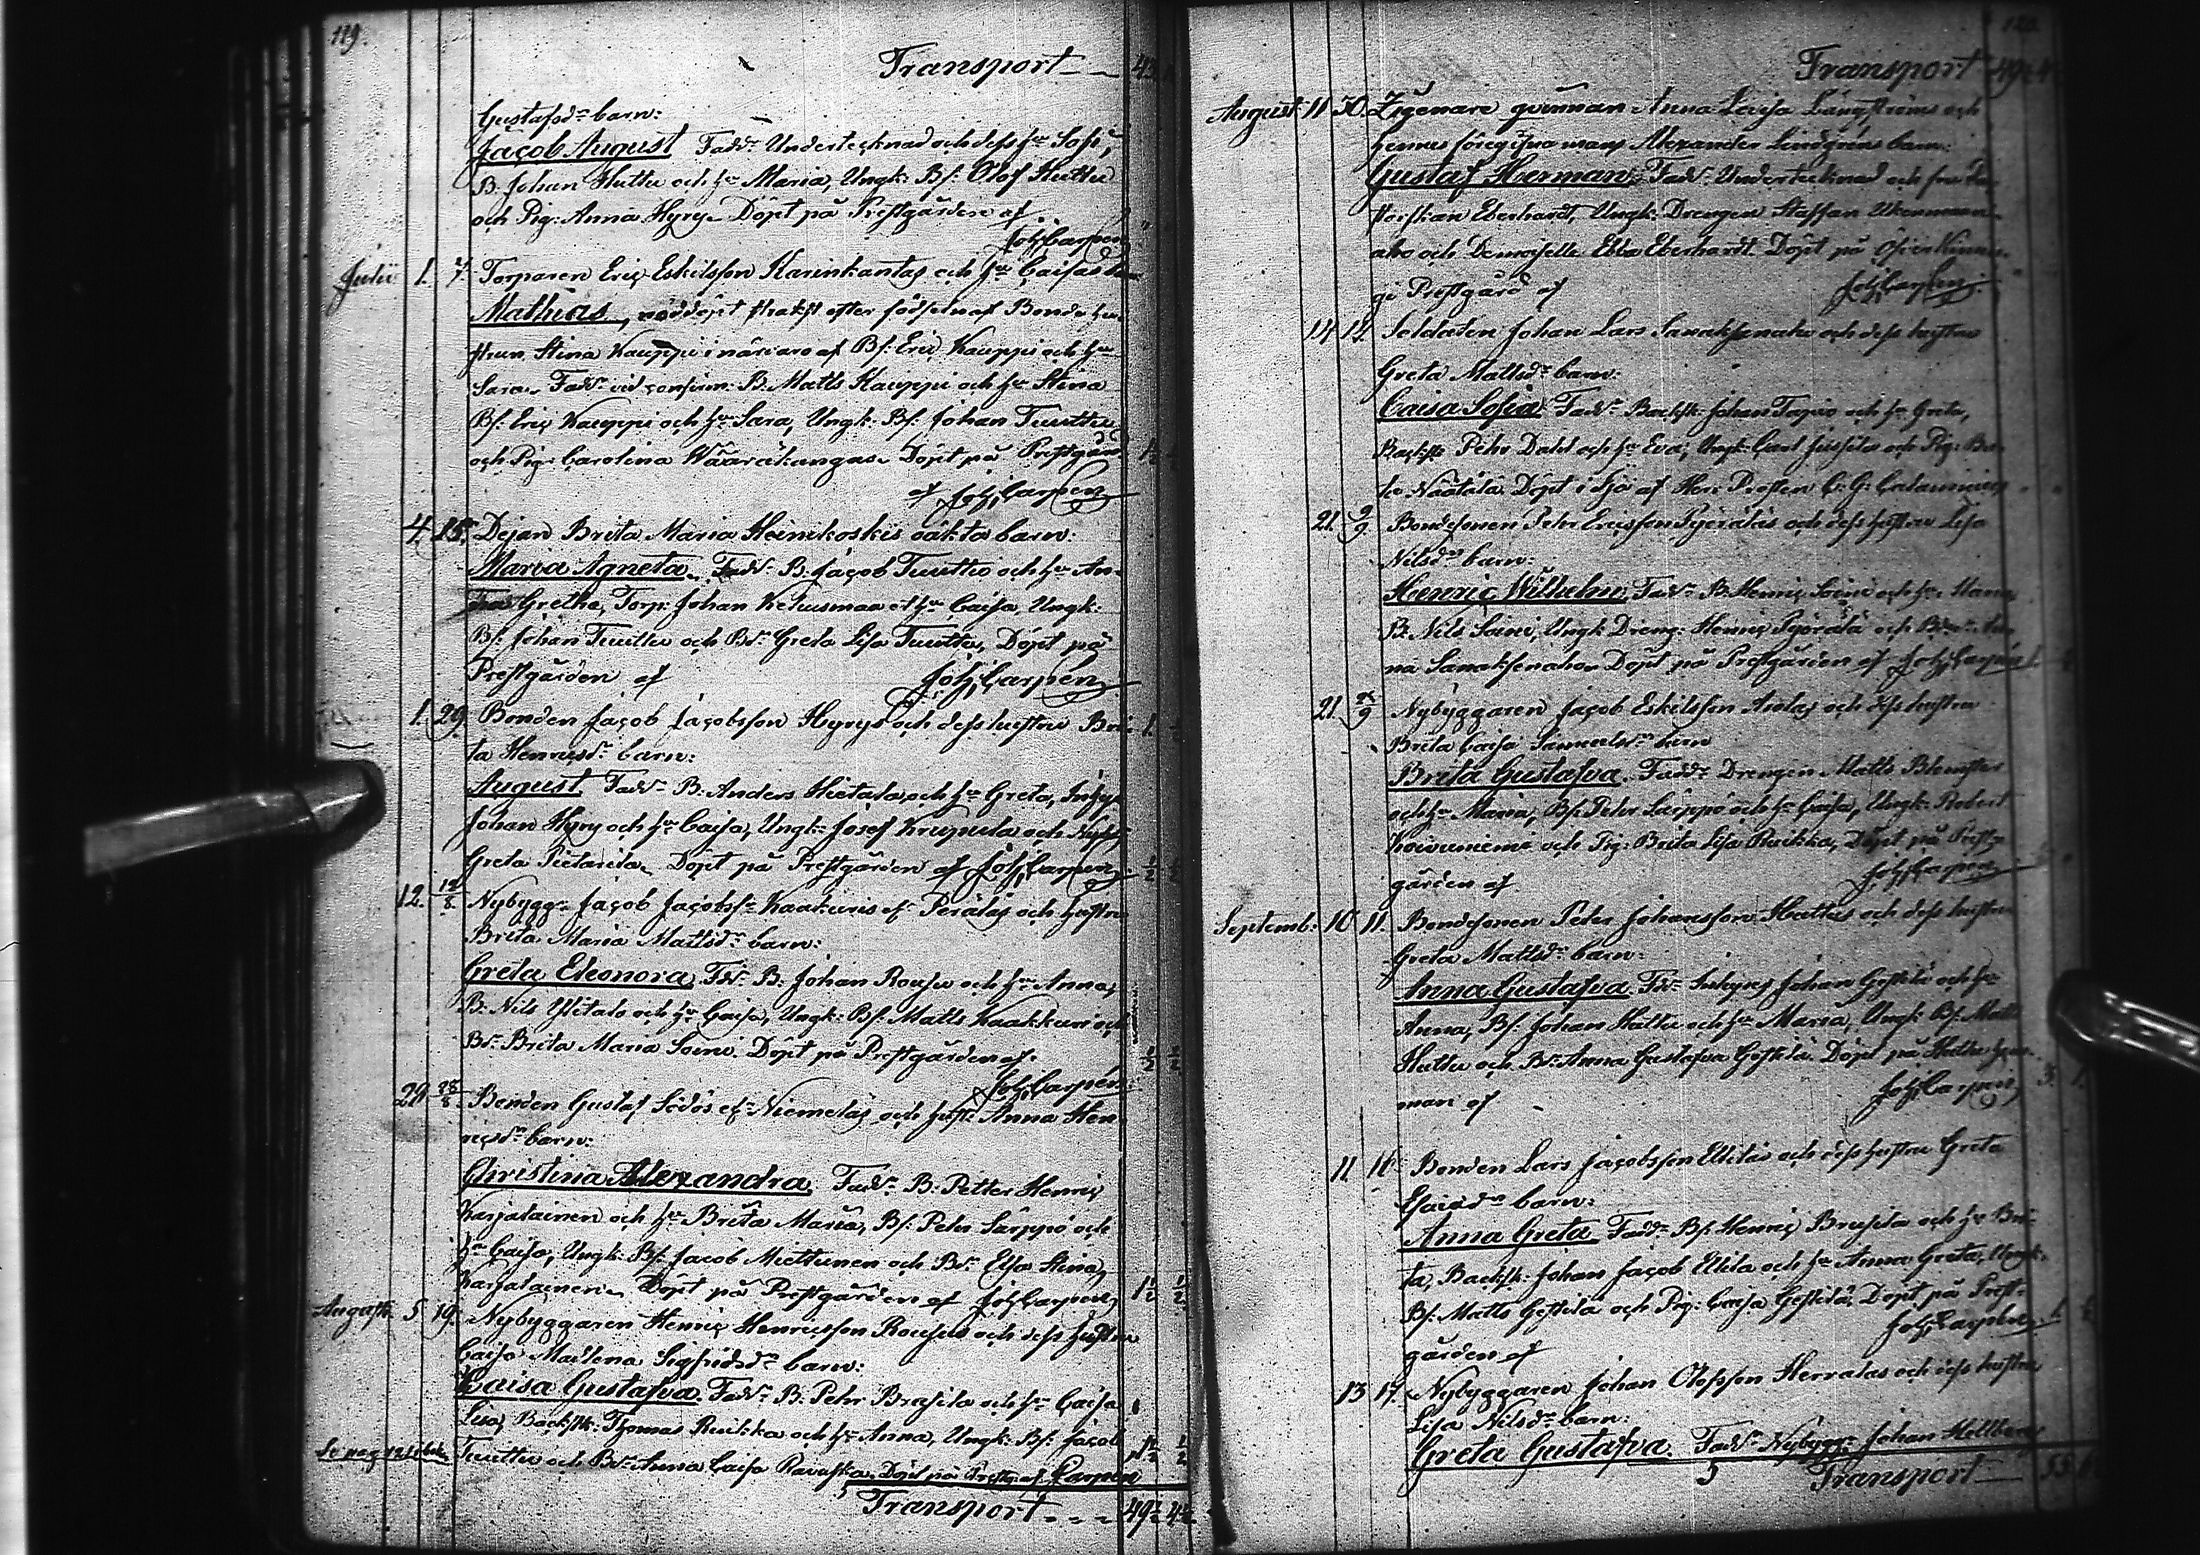 119.
Transport - - 45
Gustafsdr barn:
Jacob August Faddr Undertecknad och dess hu Sofi,
B. Johan Huttu och hu Maria, Ungk: Bs: Olof Huttu
och Pig: Anna Hyry. Döpt på Prestgården af
Joh Carpén
Julii 1. 7. Torparen Eric Eskilsson Karinkantas och hu Caisas
Mathias, nöddöpt strakst efter födseln af Bonde hu
strun Stina Kauppi i närvaro af Bs: Eric Kauppi och hu
Sara. Faddr vid confirm: B. Matts Kauppi och hu Stina
Bs: Eric Kauppi och hu Sara, Ungk: Bs: Johan Tuuttu
och Pig: Carolina Wäaräkangas. Döpt på Prestgård
af Joh Carpén
4. 15. Dejan Brita Maria Heinikoskis oäkta barn:
Maria Agneta. Faddr B. Jacob Tuuttu och hu An-
Grethe, Torp: Johan Kehusmaa et hu Caisa, Ungk:
Bs: Johan Tuuttu och Bdr Greta Lisa Tuuttu, Döpt på
Prestgården af Joh Carpén
1. 29. Bonden Jacob Jacobsson Hyrys och dess hustru Bri-
ta Henricsdr barn:
August Faddr B: Anders Hietala och hu Greta,
Johan Hyry och hu Caisa, Ungk: Josef och
Greta Pietarila. Döpt på Prestgården af Joh Carpén ½ ½
12. 12/8. Nybygg: Jacob Jacobss: Kaakuris ef Perälas och hustru
Brita Maria Mattsdr barn:
Greta Eleonora, Fdr: B. Johan Rousu och hu Anna,
B. Nils Ylitalo och hu Caisa, Ungk: Bs: Matts Kaakkuri och
Bdr Brita Maria Soini. Döpt på Prestgården af ½ ½
Joh Carpén
29. 28/8. Bonden Gustaf Södös ef Niemelas och hust: Anna Hen-
ricsdr barn:
Christina Alexandra. Faddr B. Petter Henric
Karjalainen och hu Brita Maria, Bs: Pehr Särppö och
hu Caisa, Ungk: Bs: Jacob Miettunen och Bdr Elsa Stina
Karjalainen. Döpt på Prestgården af Joh Carpén 1½ ½
August 5. 19. Nybyggaren Henric Henricsson Rousus och dess hustru
Caisa Madlena Sigfridsdr barn:
Caisa Gustafva. Faddr B. Pehr Brusila och hu Caisa
Lisa, Backstk: Thomas Ruikka och hu Anna, Ungk: Bs: Jacob ½ ½
Se pag 121 Tuuttu och Bdr Anna Caisa Döpt på Prestg: af Carpén
Transport - - - 49½ 4½
120.
Transport 49½ 4
August 11 30. Zigenare qvinnan Anna Caisa Långströms och
hennes föregifna mans Alexander Lindgréns barn:
Gustaf Herman. Faddr Undertecknad och fru Ca-
Eberhardt, Ungk: Drengen Staffan
aho och Demoiselle Ebba Eberhardt. Döpt på Öfver Kimin-
gi Prestgård af Joh Carpén
14 14. Soldaten Johan Lars Sanaksenaho och dess hustrus
Greta Mattsdr barn:
Caisa Sofia Faddr Backstk: Johan Tapio och hu Greta,
Backstk Pehr Dahl och hu Eva, Ungk: Carl och Pig: Bri-
ta Näätälä. Döpt i Ijö af Herr Prosten C: G: Calamnius
21. 2/9. Bondesonen Pehr Ericsson Pyöriäs och dess hustru Lisa
Nilsdr barn:
Henric Wilhelm, Faddr B. Henric Soini och hu Maria,
B. Nils Soini, Ungk: Dreng: Henric och Bdr An-
na Sanaksenaho. Döpt på Prestgården af Joh Carpén
21. /9 Nybyggaren Jacob Eskilsson Arolas och dess hustru
Brita Caisa Samuelsdr barn
Brita Gustafva. Faddr Drengen Matts Blomster
och hu Maria, Bs: Pehr Särppö och hu Caisa, Ungk: Robert
Koivuniemi och Pig: Brita Lisa Ruikka, Döpt på Prest-
gården af Joh Carpén
Septemb: 10 11. Bondesonen Peter Johansson Huttus och dess hustru
Greta Mattsdr barn:
Anna Gustafva. Fdr Inhyses Johan och hu
Anna, Bs: Johan Huttu och hu Maria, Ungk: Bs: Matts
Huttu och Bdr Anna Gustafva Döpt på Huttu hem-
man af Joh Carpén
11 16 Bonden Lars Jacobsson Ellilas och dess hustru Greta
barn:
Anna Greta. Faddr Bs: Henric Brusila och hu Bri-
ta, Backstk: Johan Jacob Ellila och hu Anna Greta, Ungk:
Bs: Matts och Pig: Caisa Döpt på Prest-
gården af Joh Carpén
13 17. Nybyggaren Johan Olofsson Herralas och dess hustru
Lisa Nilsdr barn:
Greta Gustafva. Faddr Nybygg: Johan Hellberg
Transport